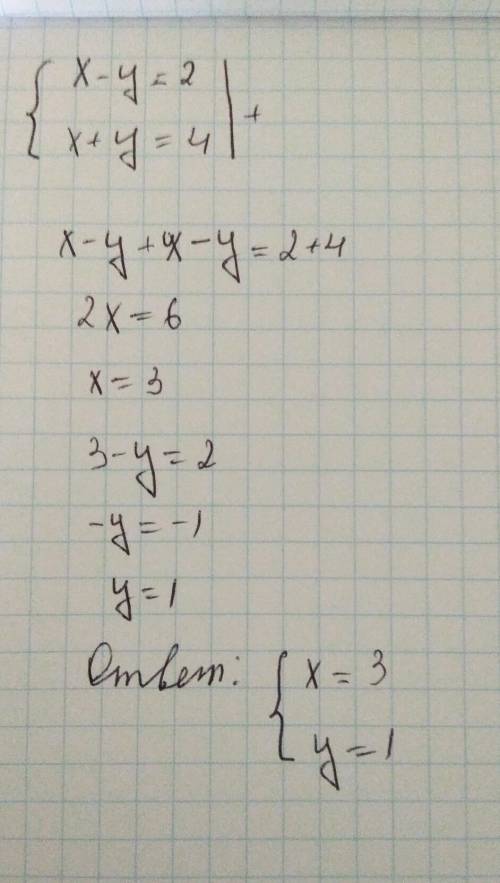 { x - y = 2 | +
{ x + y = 4 |
x - y + x - y = 2 + 4
2x = 6
x = 3
3 - y = 2
-y = -1
y = 1
Ответ: { x = 3
{ y = 1